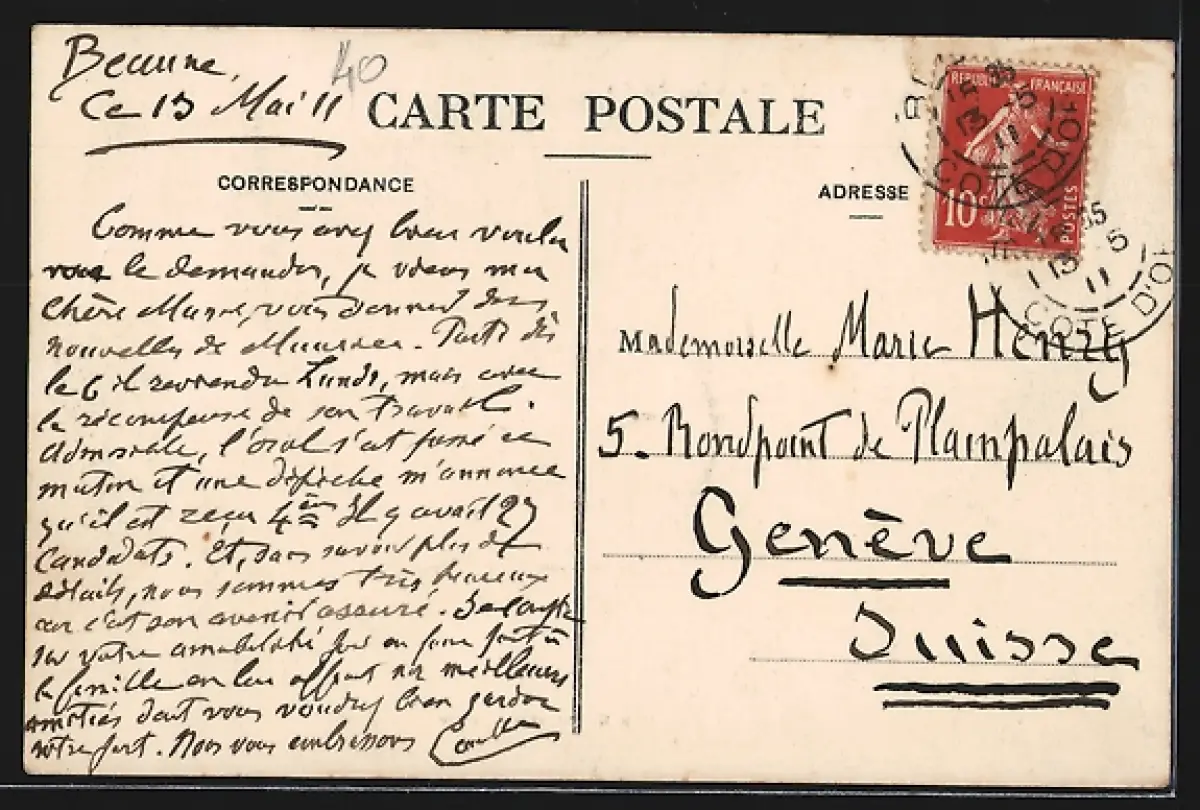 Beaune,
Ce 13 Mai 11
40
CARTE POSTALE
CORRESPONDANCE
ADRESSE
RÉPUBLIQUE FRANÇAISE
10 c
POSTES
13 5
11
COTE D'OR
13 5
11
COTE D'OR
Comme vous avez bien voulu
le demander, je viens ma
chère Marie, vous donner des
nouvelles de Maurice. Parti dès
le 6 il reviendra Lundi, mais avec
la récompense de son travail.
Admissible, l'oral s'est passé ce
matin et une dépêche m'annonce
qu'il est reçu 4ème Il y avait 27
candidats. Et, sans savoir plus de
détails, nous sommes très heureux
car c'est son avenir assuré. Je compte
sur votre amabilité pour en faire part à
la famille en leur offrant nos meilleures
amitiés dont vous voudrez bien garder
votre part. Nous vous embrassons
Mademoiselle Marie Henry
5. Rondpoint de Plainpalais
Genève
Suisse